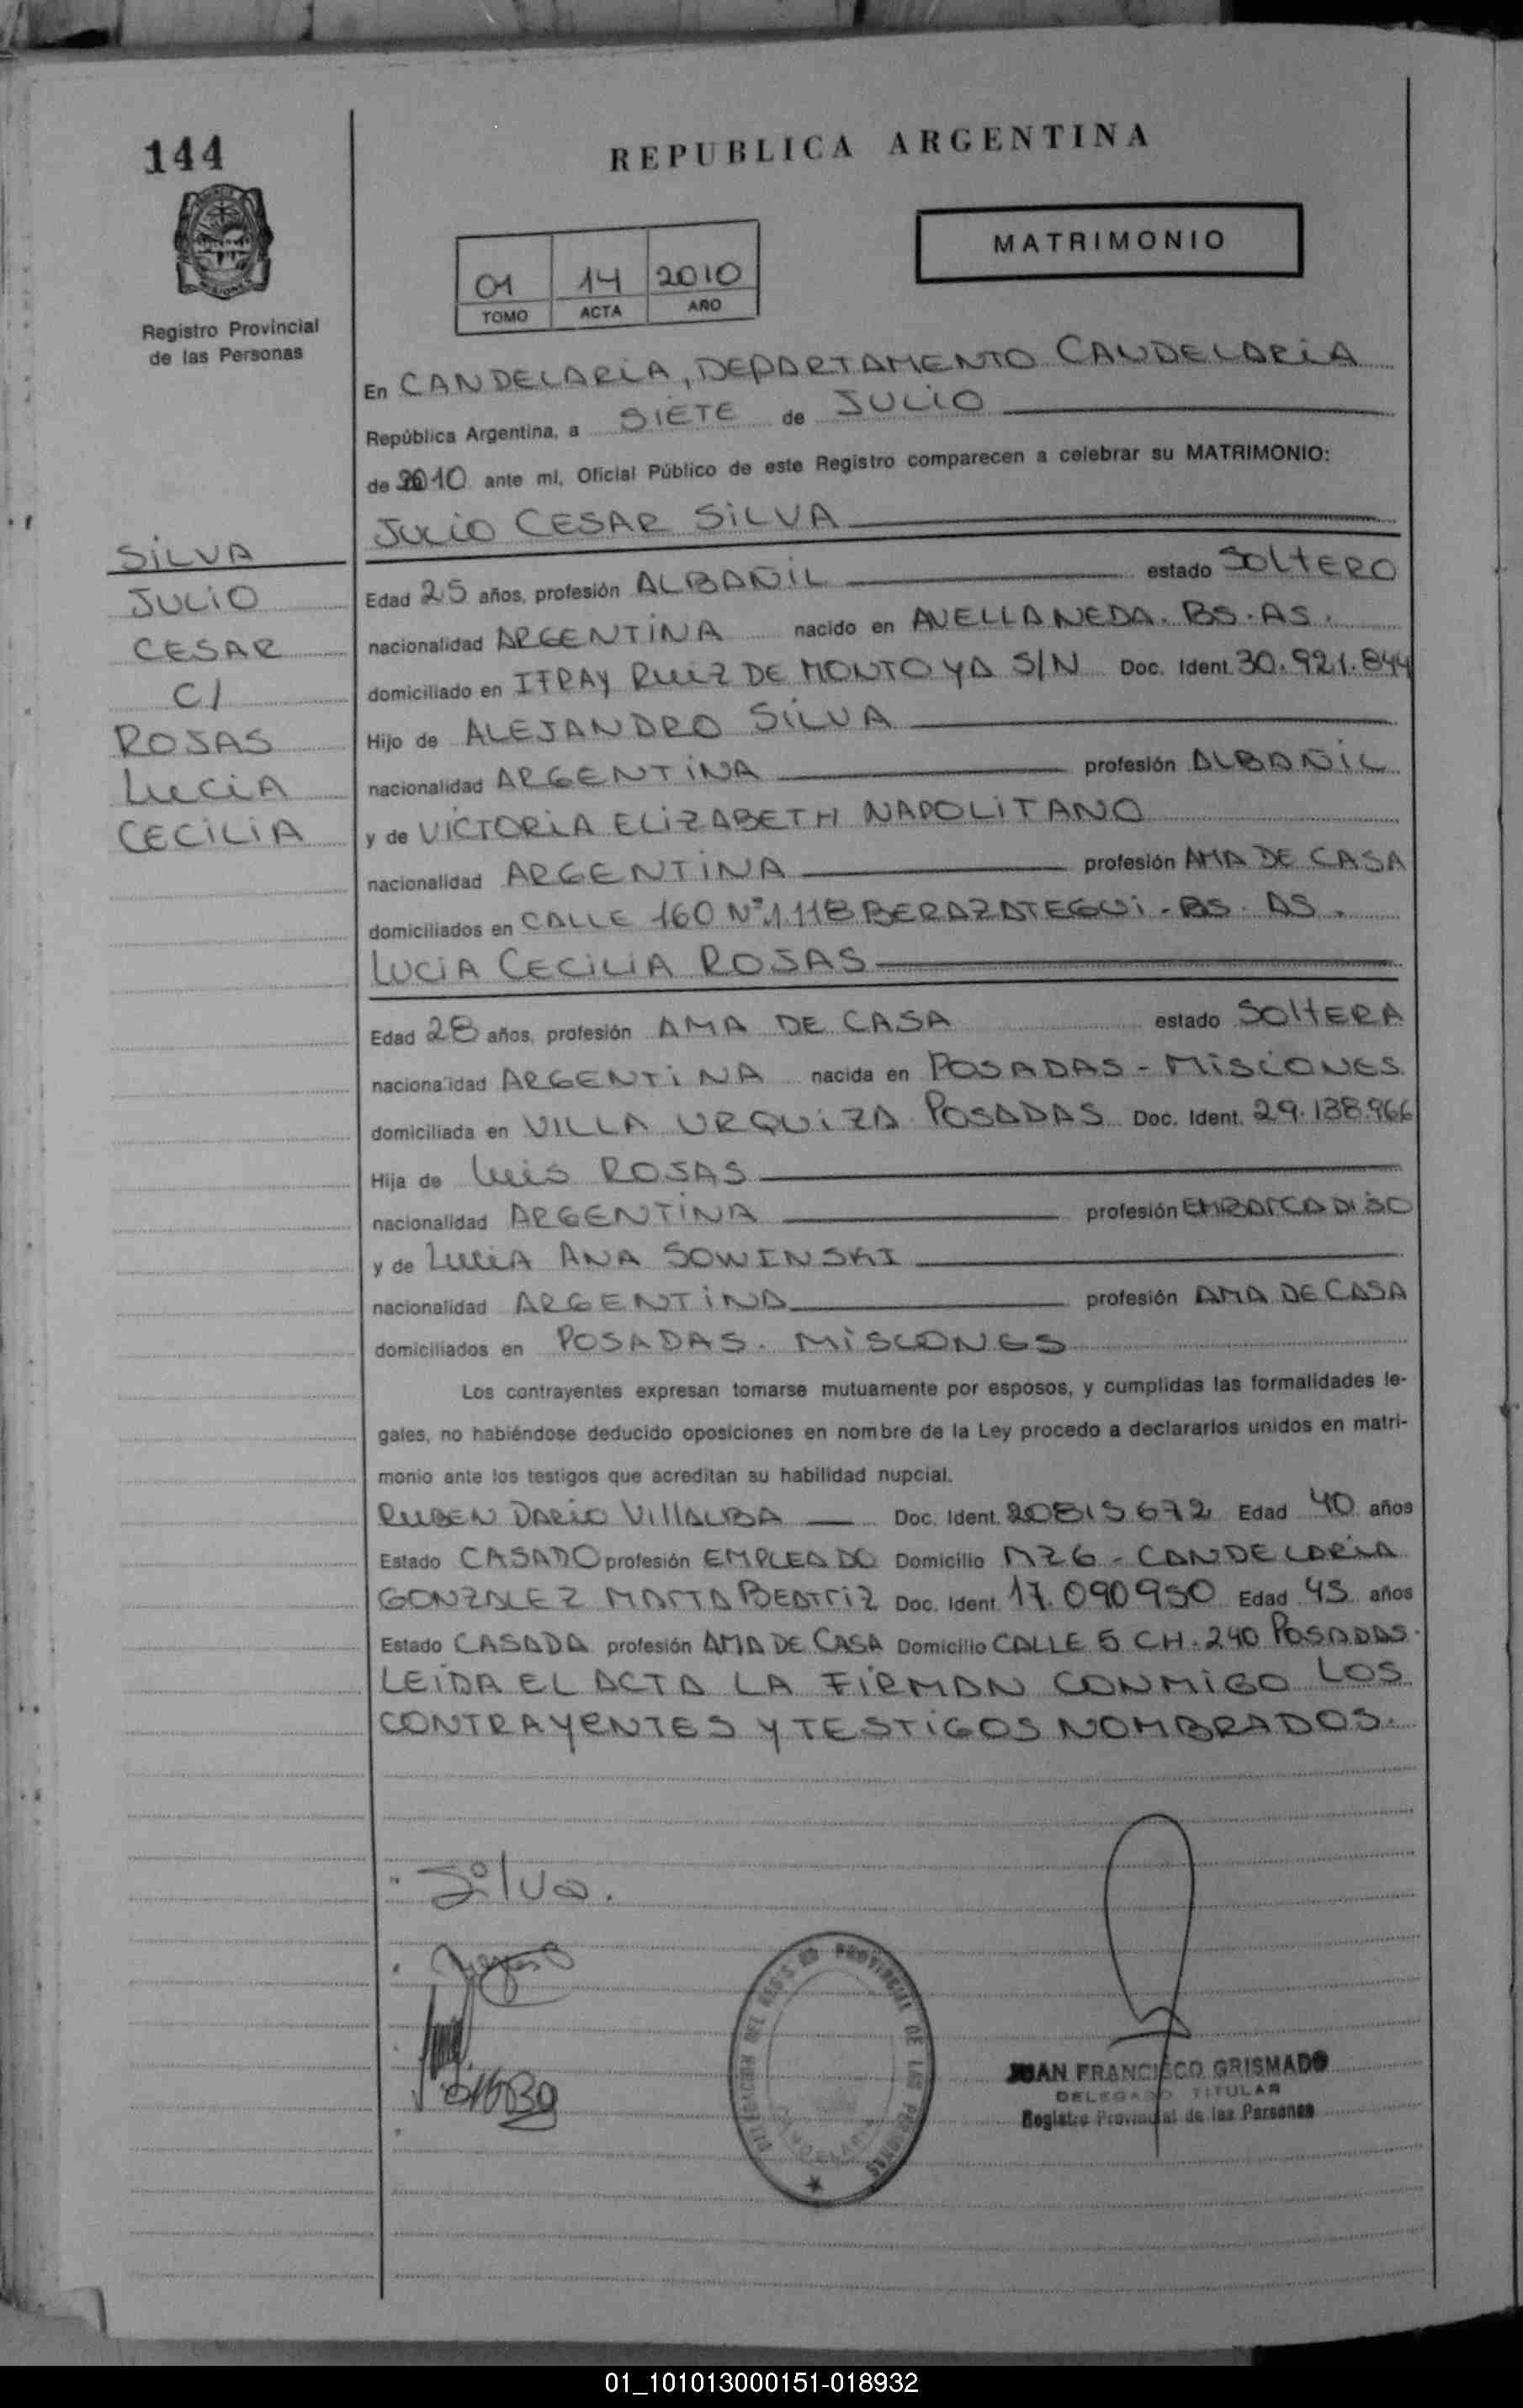 144
REPUBLICA ARGENTINA
MATRIMONIO
01 14 2010
TOMO ACTA AÑO
Registro Provincial
de las Personas
En CANDELARIA, DEPARTAMENTO CANDELARIA
República Argentina, a SIETE de JULIO
de 2010 ante mí, Oficial Público de este Registro comparecen a celebrar su MATRIMONIO:
JULIO CESAR SILVA
SILVA
JULIO
CESAR
C/
ROSAS
LUCIA
CECILIA
Edad 25 años, profesión ALBAÑIL estado SOLTERO
nacionalidad ARGENTINA nacido en AVELLANEDA. BS. AS.
domiciliado en RUIZ DE MONTOYA S/N Doc. Ident. 30.921.844
Hijo de ALEJANDRO SILVA
nacionalidad ARGENTINA profesión ALBAÑIL
y de VICTORIA ELIZABETH NAPOLITANO
nacionalidad ARGENTINA profesión AMA DE CASA
domiciliados en CALLE 160 Nº 1.118 BERAZATEGUI - BS. AS.
LUCIA CECILIA ROSAS
Edad 28 años, profesión AMA DE CASA estado SOLTERA
nacionalidad ARGENTINA nacida en POSADAS - MISIONES
domiciliada en VILLA URQUIZA POSADAS Doc. Ident. 29.138.966
Hija de LUIS ROSAS
nacionalidad ARGENTINA profesión
y de LUCIA ANA SOWINSKI
nacionalidad ARGENTINA profesión AMA DE CASA
domiciliados en POSADAS. MISIONES
Los contrayentes expresan tomarse mutuamente por esposos, y cumplidas las formalidades le-
gales, no habiéndose deducido oposiciones en nombre de la Ley procedo a declararlos unidos en matri-
monio ante los testigos que acreditan su habilidad nupcial.
RUBEN DARIO VILLALBA Doc. Ident. 20815672 Edad 40 años
Estado CASADO profesión EMPLEADO Domicilio MZ6 - CANDELARIA
GONZALEZ MARTA BEATRIZ Doc. Ident. 17.090950 Edad 45 años
Estado CASADA profesión AMA DE CASA Domicilio CALLE 5 CH. 240 POSADAS.
LEIDA EL ACTA LA FIRMAN CONMIGO LOS
CONTRAYENTES Y TESTIGOS NOMBRADOS.
Silva.
JUAN FRANCISCO GRISMADO
DELEGADO TITULAR
Registro Provincial de las Personas
01_101013000151-018932